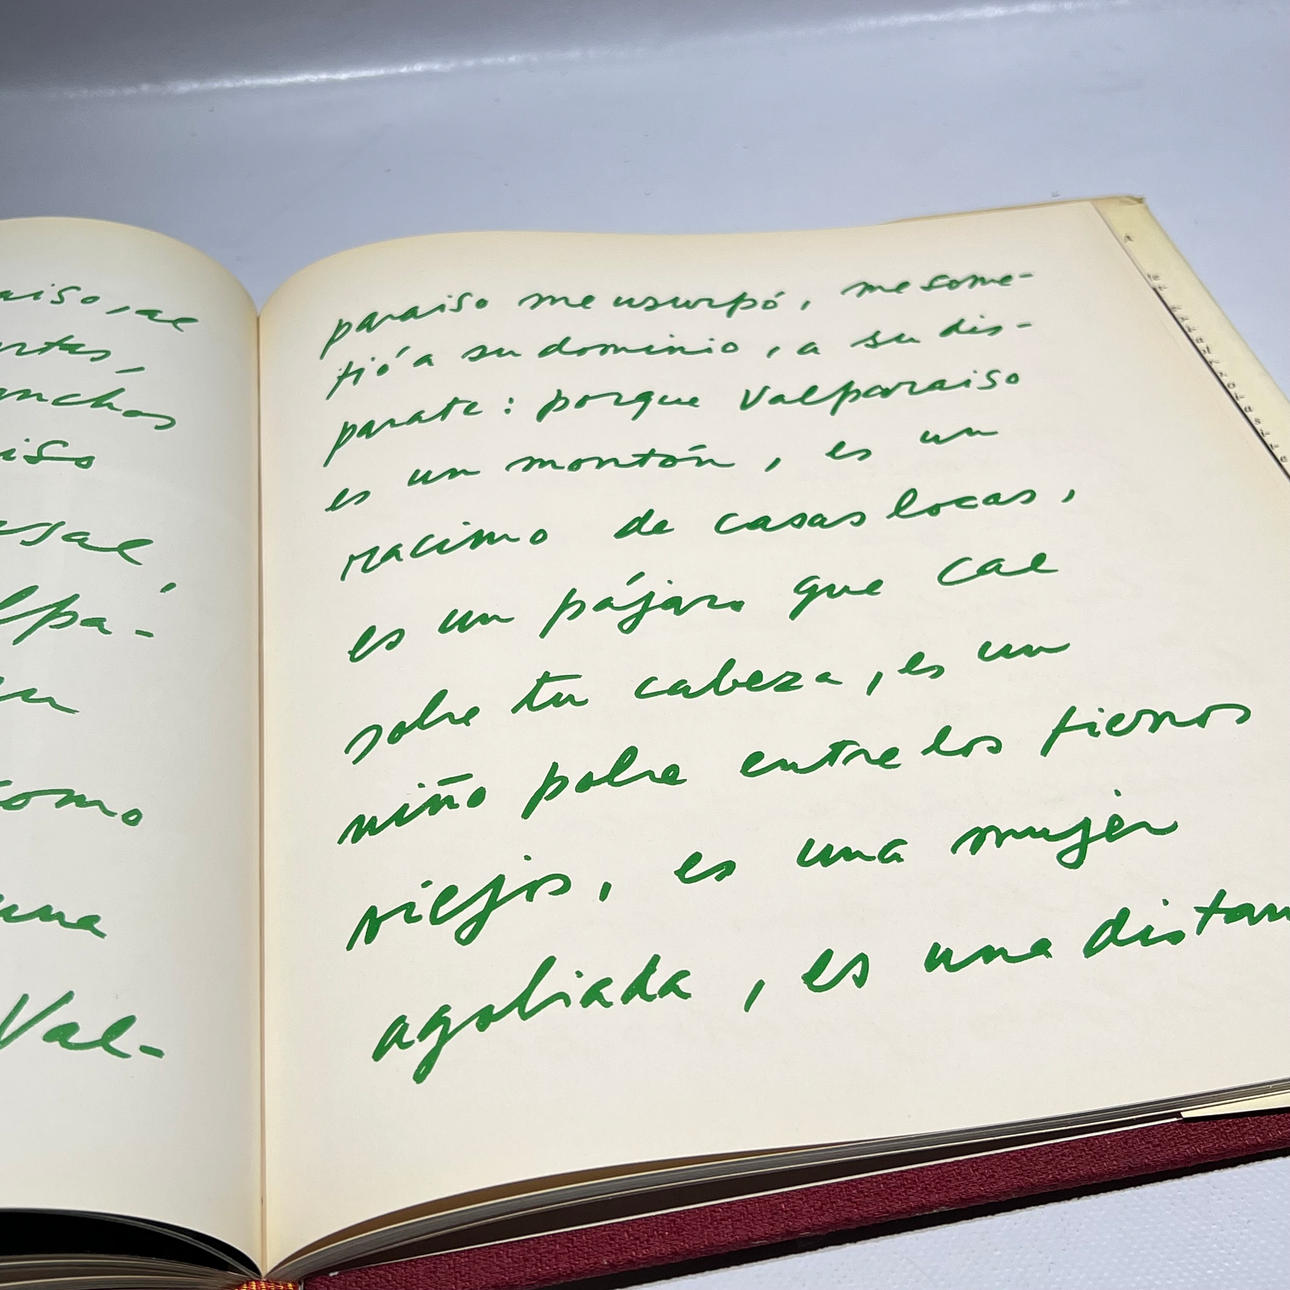 aiso, al
rtas,
anchos
iso
rsal,
lpa-
su
como
una
Val-
paraiso me usurpó, me some-
tió a su dominio, a su dis-
parate: porque Valparaiso
es un montón, es un
racimo de casas locas,
es un pájaro que cae
sobre tu cabeza, es un
niño pobre entre los tiernos
viejos, es una mujer
agobiada, es una distan